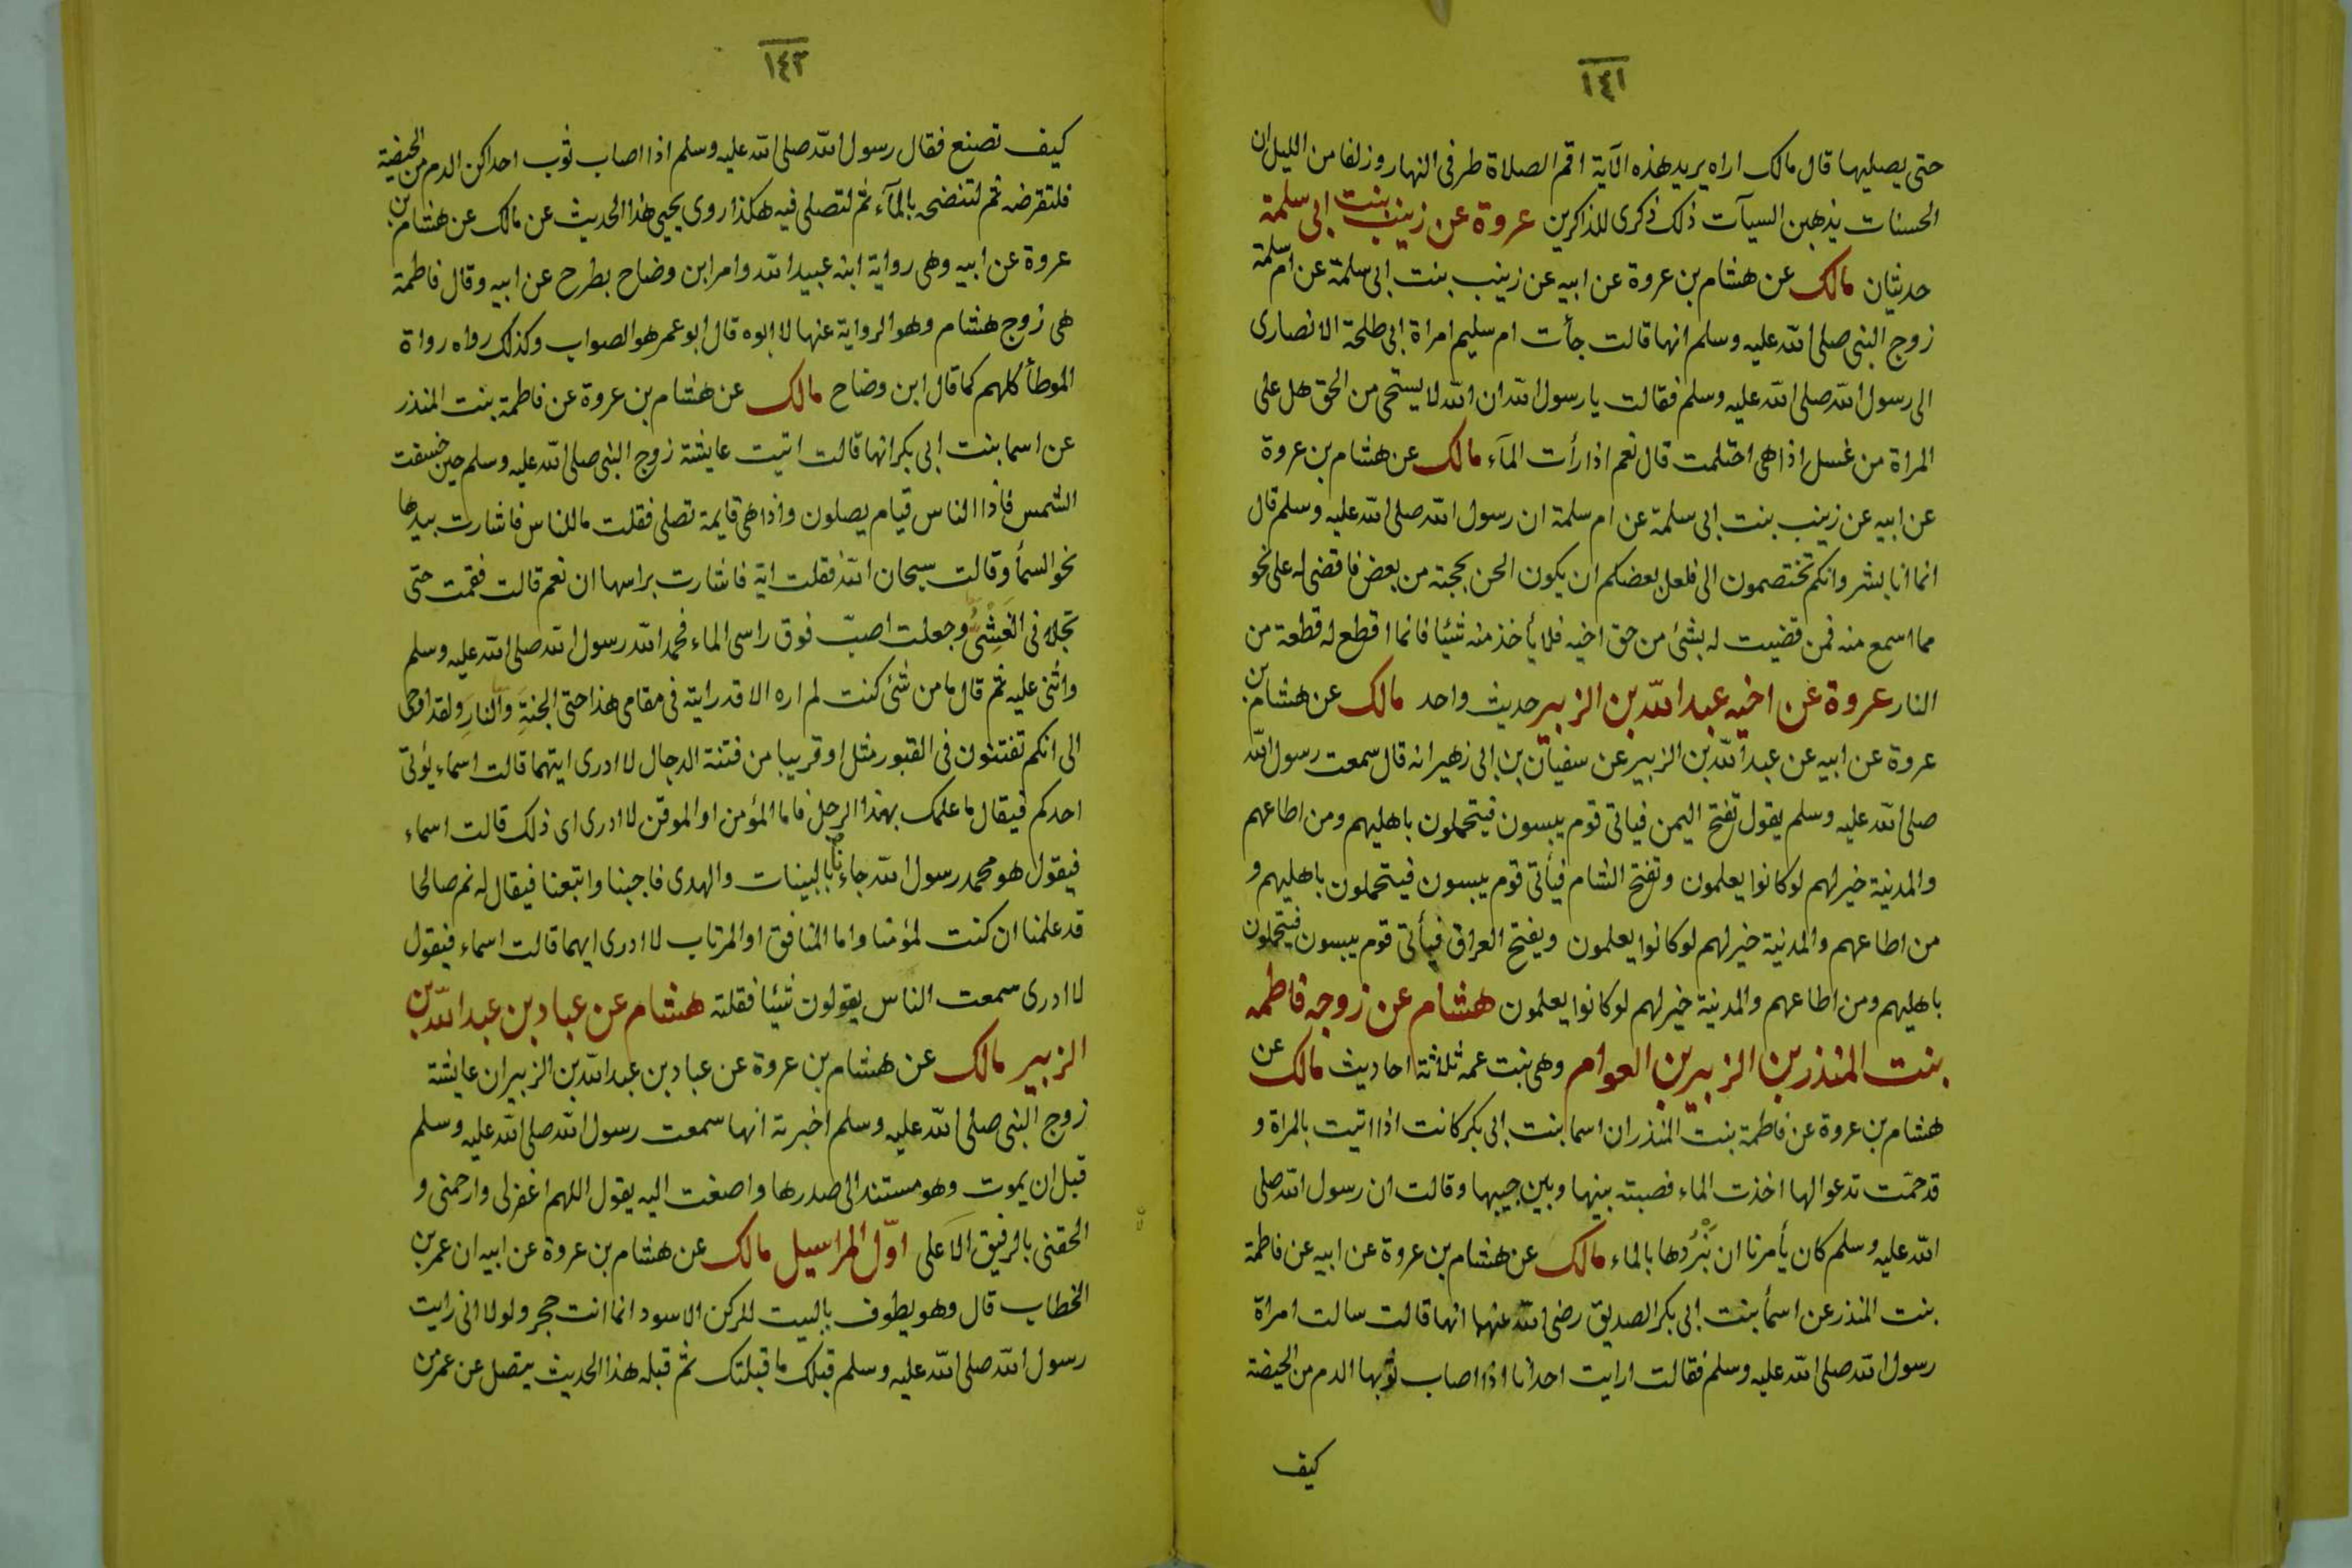 ١٤١
حتى يصليها قال مالك اراه يريد هذه الآية اقم الصلاة طرفى النهار وزلفا من الليل ان
الحسنات يذهبن السيآت ذلك ذكرى للذاكرين عروة عن زينب بنت ابى سلمة
حديثان مالك عن هشام بن عروة عن ابيه عن زينب بنت ابى سلمة عن ام سلمة
زوج النبى صلى الله عليه وسلم انها قالت جأت ام سليم امراة ابى طلحة الانصارى
الى رسول الله صلى الله عليه وسلم فقالت يا رسول الله ان الله لا يستحى من الحق هل على
المراة من غسل اذا هى احتلمت قال نعم اذا رأت المآء مالك عن هشام بن عروة
عن ابيه عن زينب بنت ابى سلمة عن ام سلمة ان رسول الله صلى الله عليه وسلم قال
انما انا بشر وانكم تختصمون الى فلعل بعضكم ان يكون الحن بحجته من بعض فاقضى له على نحو
مما اسمع منه فمن قضيت له بشئ من حق اخيه فلا يأخذ منه شيئا فانما اقطع له قطعة من
النار عروة عن اخيه عبد الله بن الزبير حديث واحد مالك عن هشام بن
عروة عن ابيه عن عبد الله بن الزبير عن سفيان بن ابى زهير انه قال سمعت رسول الله
صلى الله عليه وسلم يقول تفتح اليمن فياتى قوم يبسون فيتحملون باهليهم ومن اطاعهم
والمدينة خير لهم لو كانوا يعلمون وتفتح الشام فيأتى قوم يبسون فيتحملون باهليهم و
من اطاعهم والمدينة خير لهم لو كانوا يعلمون ويفتح العراق فيأتى قوم يبسون فيتحملون
باهليهم ومن اطاعهم والمدينة خير لهم لو كانوا يعلمون هشام عن زوجه فاطمه
بنت المنذر بن الزبير بن العوام وهى بنت عمه ثلاثة احاديث مالك عن
هشام بن عروة عن فاطمة بنت المنذر ان اسما بنت ابى بكر كانت اذا اتيت بالمراة و
قد حمّت تدعو الها اخذت الماء فصبته بينها وبين جيبها وقالت ان رسول الله صلى
الله عليه وسلم كان يأمرنا ان نبْرُدها بالماء مالك عن هشام بن عروة عن ابيه عن فاطمة
بنت المنذر عن اسمأ بنت ابى بكر الصديق رضى الله عنهما انها قالت سالت امراة
رسول الله صلى الله عليه وسلم فقالت ارايت احدانا اذا اصاب ثوبها الدم من الحيضة
كيف
١٤٢
كيف تصنع فقال رسول الله صلى الله عليه وسلم اذا اصاب ثوب احداكن الدم من الحيضة
فلتقرضه ثم لتنضحه بالمآء ثم لتصلى فيه هكذا روى يحيى هذا الحديث عن مالك عن هشام بن
عروة عن ابيه وهى رواية ابنه عبيد الله وامر ابن وضاح بطرح عن ابيه وقال فاطمة
هى زوج هشام وهو الرواية عنها لا ابوه قال ابو عمر هو الصواب وكذلك رواه رواة
الموطأ كلهم كما قال ابن وضاح مالك عن هشام بن عروة عن فاطمة بنت المنذر
عن اسما بنت ابى بكر انها قالت اتيت عايشة زوج النبى صلى الله عليه وسلم حين خسفت
الشمس فاذا الناس قيام يصلون واذا هى قايمة تصلى فقلت ما للناس فاشارت بيدها
نحو السمأ وقالت سبحان الله فقلت اية فاشارت براسها ان نعم قالت فقمت حتى
تجلانى الغَشْىُ وجعلت اصبّ فوق راسى الماء فحمد الله رسول الله صلى الله عليه وسلم
واثنى عليه ثم قال ما من شئ كنت لم اره الا قد رايته فى مقامى هذا حتى الجنةَِ والنارَِ ولقد اوحى
الى انكم تفتنون فى القبور مثل او قريبا من فتنة الدجال لا ادرى ايتهما قالت اسماء يؤتى
احدكم فيقال ما علمك بهذا الرجل فاما المؤمن او الموقن لا ادرى اى ذلك قالت اسماء
فيقول هو محمد رسول الله جاءنا بالبينات والهدى فاجبنا واتبعنا فيقال له نم صالحا
قد علمنا ان كنت لمؤمنا واما المنافق او المرتاب لا ادرى ايهما قالت اسماء فيقول
لا ادرى سمعت الناس يقولون شيئا فقلته هشام عن عباد بن عبد الله بن
الزبير مالك عن هشام بن عروة عن عباد بن عبد الله بن الزبير ان عايشة
زوج النبى صلى الله عليه وسلم اخبرته انها سمعت رسول الله صلى الله عليه وسلم
قبل ان يموت وهو مستند الى صدرها واصغت اليه يقول اللهم اغفرلى وارحمنى و
الحقنى بالرفيق الاعلى اوّل المراسيل مالك عن هشام بن عروة عن ابيه ان عمر بن
الخطاب قال وهو يطوف بالبيت للركن الاسود انما انت حجر ولولا انى رايت
رسول الله صلى الله عليه وسلم قبلك ما قبلتك ثم قبله هذا الحديث يتصل عن عمر من